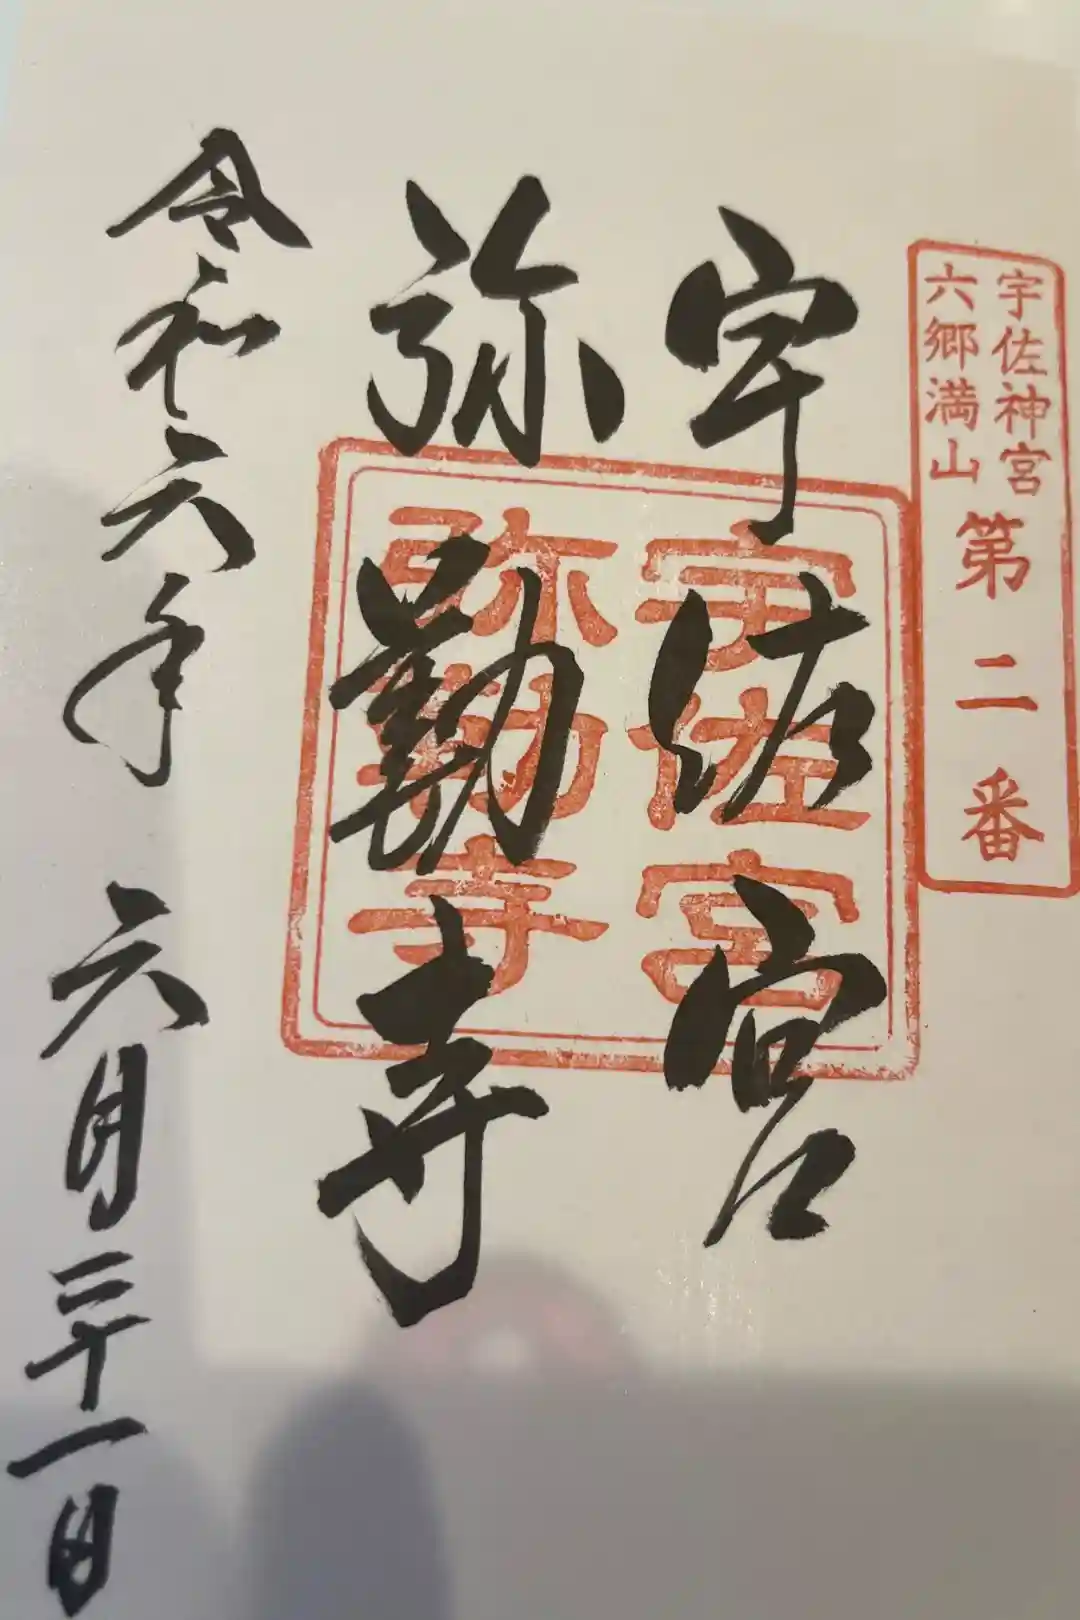 宇佐神宮
六郷満山
第二番
宇佐宮
弥勒寺
宇佐宮
弥勒寺
令和六年 六月二十一日